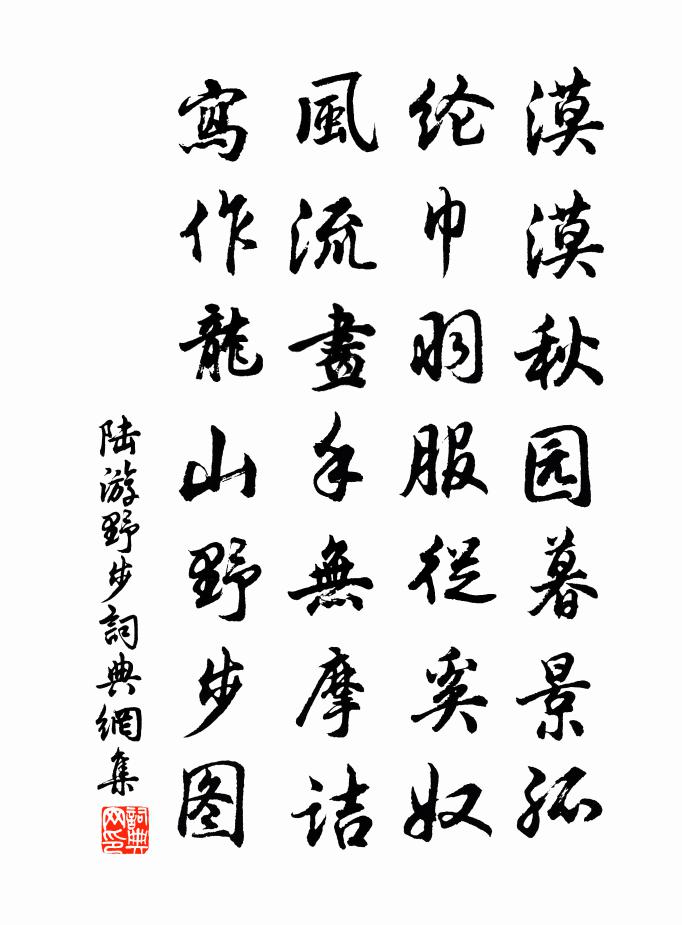 漠漠秋园暮景孤
纶巾羽服從奚奴
風流畫手無摩詰
寫作龍山野步图
陆游野步詞典網集
詞典网印